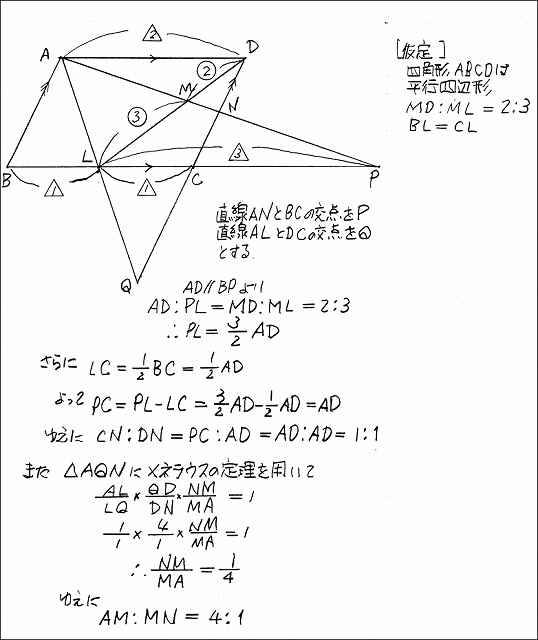 2
A
D
2
M
3
N
L
3
B
1
1
C
P
Q
[仮定]
四角形ABCDは
平行四辺形
MD:ML = 2:3
BL = CL
直線ANとBCの交点をP
直線ALとDCの交点をQ
とする.
AD//BPより
AD:PL=MD:ML=2:3
∴PL=3/2 AD
さらに LC=1/2BC=1/2AD
よって PC=PL-LC=3/2AD-1/2AD=AD
ゆえに CN:DN=PC:AD=AD:AD=1:1
また △AQNにメネラウスの定理を用いて
AL/LQ × QD/DN × NM/MA = 1
1/1 × 4/1 × NM/MA = 1
∴ NM/MA = 1/4
ゆえに
AM:MN = 4:1